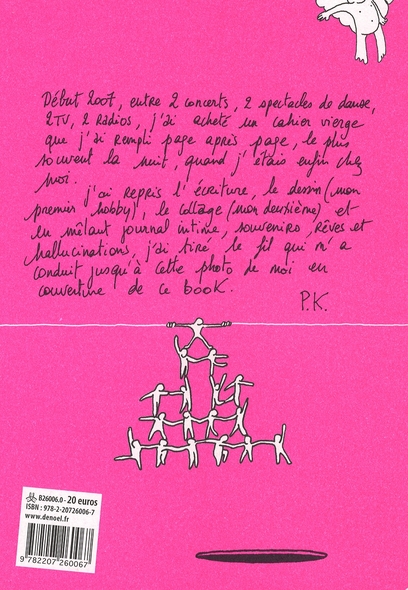 Début 2007, entre 2 concerts, 2 spectacles de danse,
2 TV, 2 Radios, j'ai acheté un cahier vierge
que j'ai rempli page après page, le plus
souvent la nuit, quand j'étais enfin chez
moi.
j'ai repris l'écriture, le dessin (mon
premier hobby), le collage (mon deuxième) et
en mêlant journal intime, souvenirs, rêves et
hallucinations, j'ai tiré le fil qui m'a
conduit jusqu'à cette photo de moi en
couverture de ce book.
P.K.
B26006.0 - 20 euros
ISBN : 978-2-20726006-7
www.denoel.fr
9 782207 260067